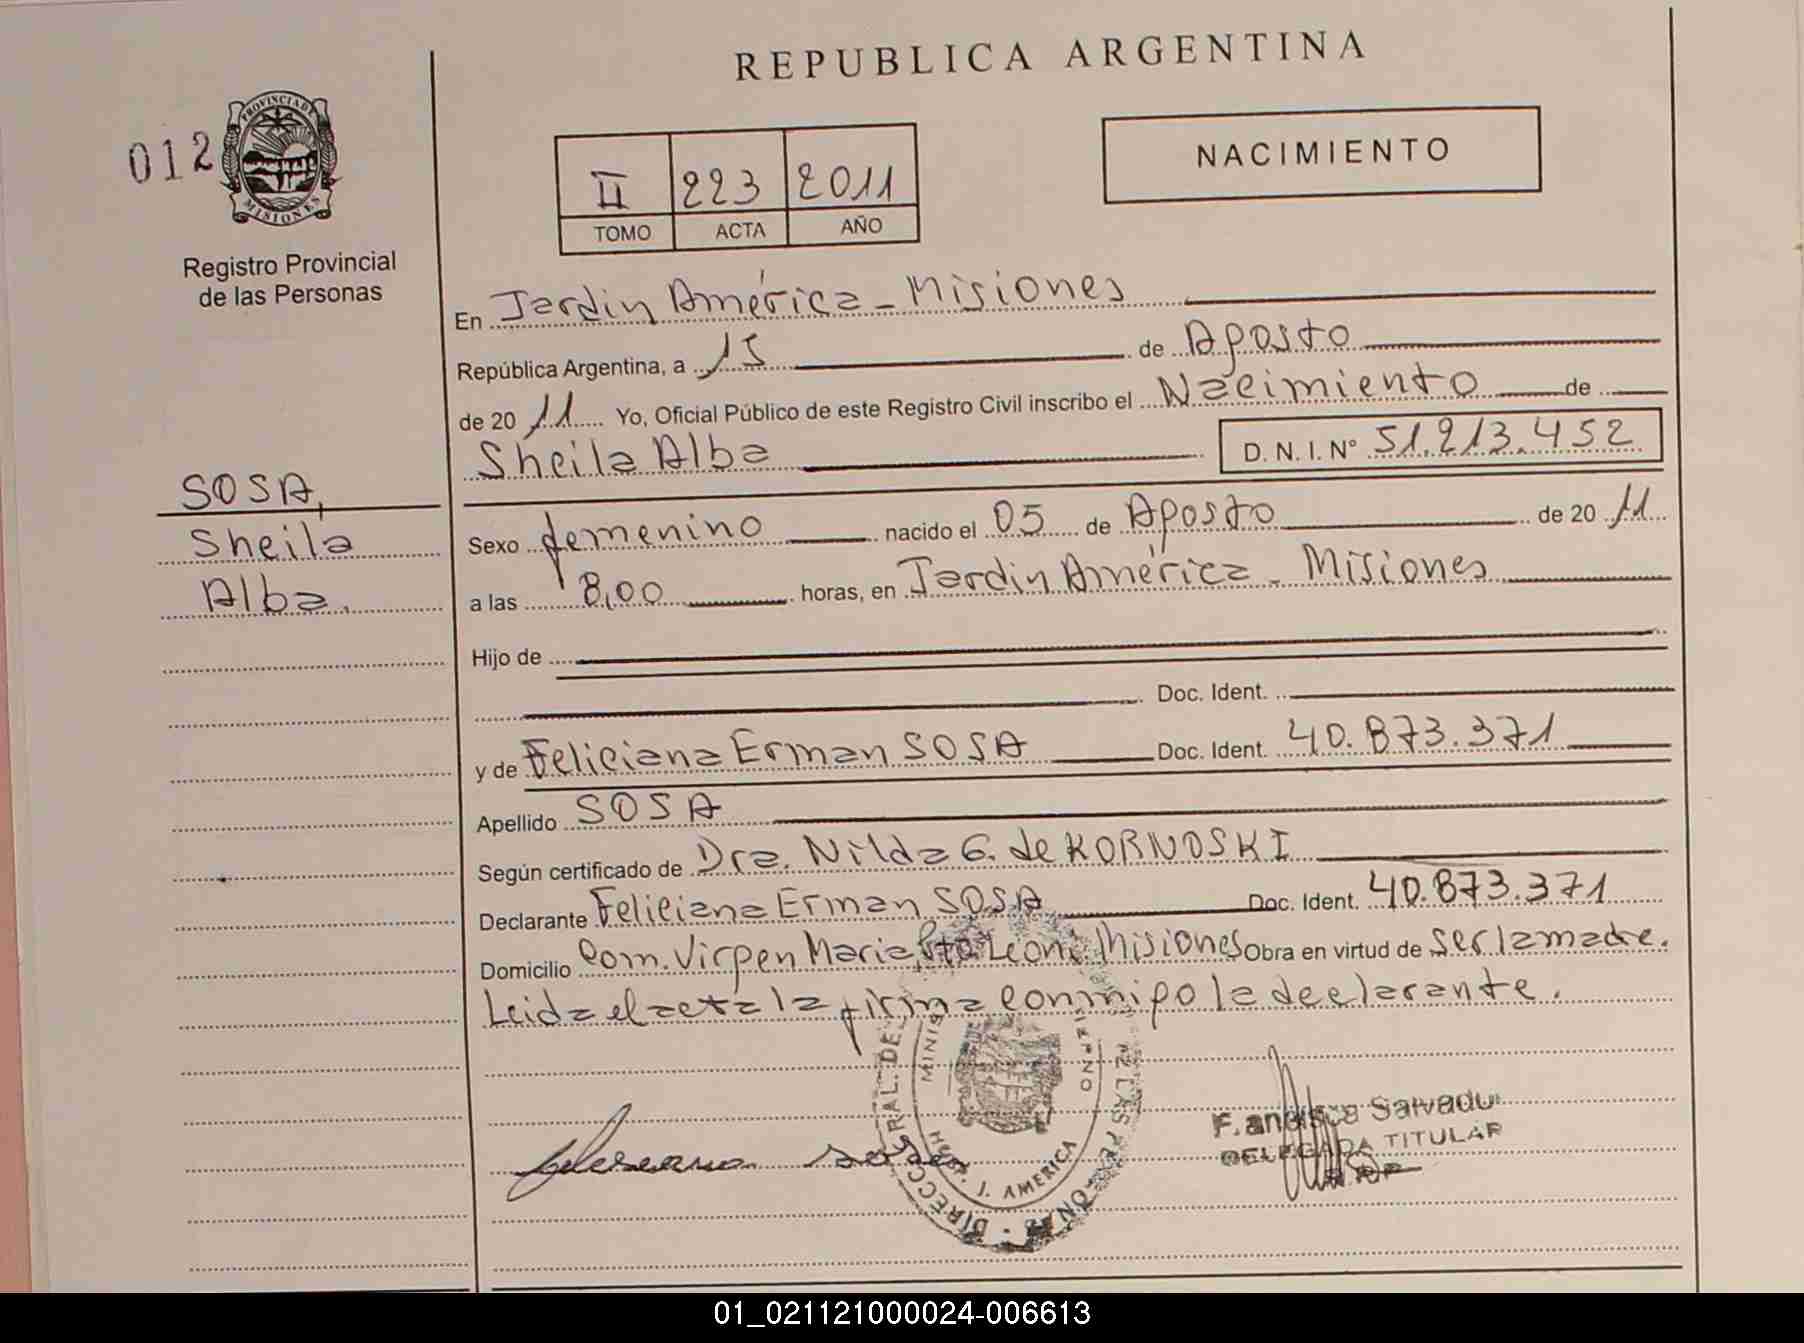 REPUBLICA ARGENTINA
012
PROVINCIA DE
MISIONES
Registro Provincial
de las Personas
II 223 2011
TOMO ACTA AÑO
NACIMIENTO
En Jardin América - Misiones
República Argentina, a 15 de Agosto
de 20 11 Yo, Oficial Público de este Registro Civil inscribo el Nacimiento de
Sheila Alba D. N. I. Nº 51.213.452
SOSA,
Sheila
Alba.
Sexo femenino nacido el 05 de Agosto de 20 11
a las 8,00 horas, en Jardin América - Misiones
Hijo de
Doc. Ident.
y de Feliciana Erman SOSA Doc. Ident. 40.873.371
Apellido SOSA
Según certificado de Dra. Nilda G. de KORNOSKI
Declarante Feliciana Erman SOSA Doc. Ident. 40.873.371
Domicilio Com. Virgen Maria Pto Leoni Misiones Obra en virtud de ser la madre.
Leida el acta la firma conmigo la declarante.
MINIS
J. AMERICA
sosa
DELEGADA TITULAR
01_021121000024-006613